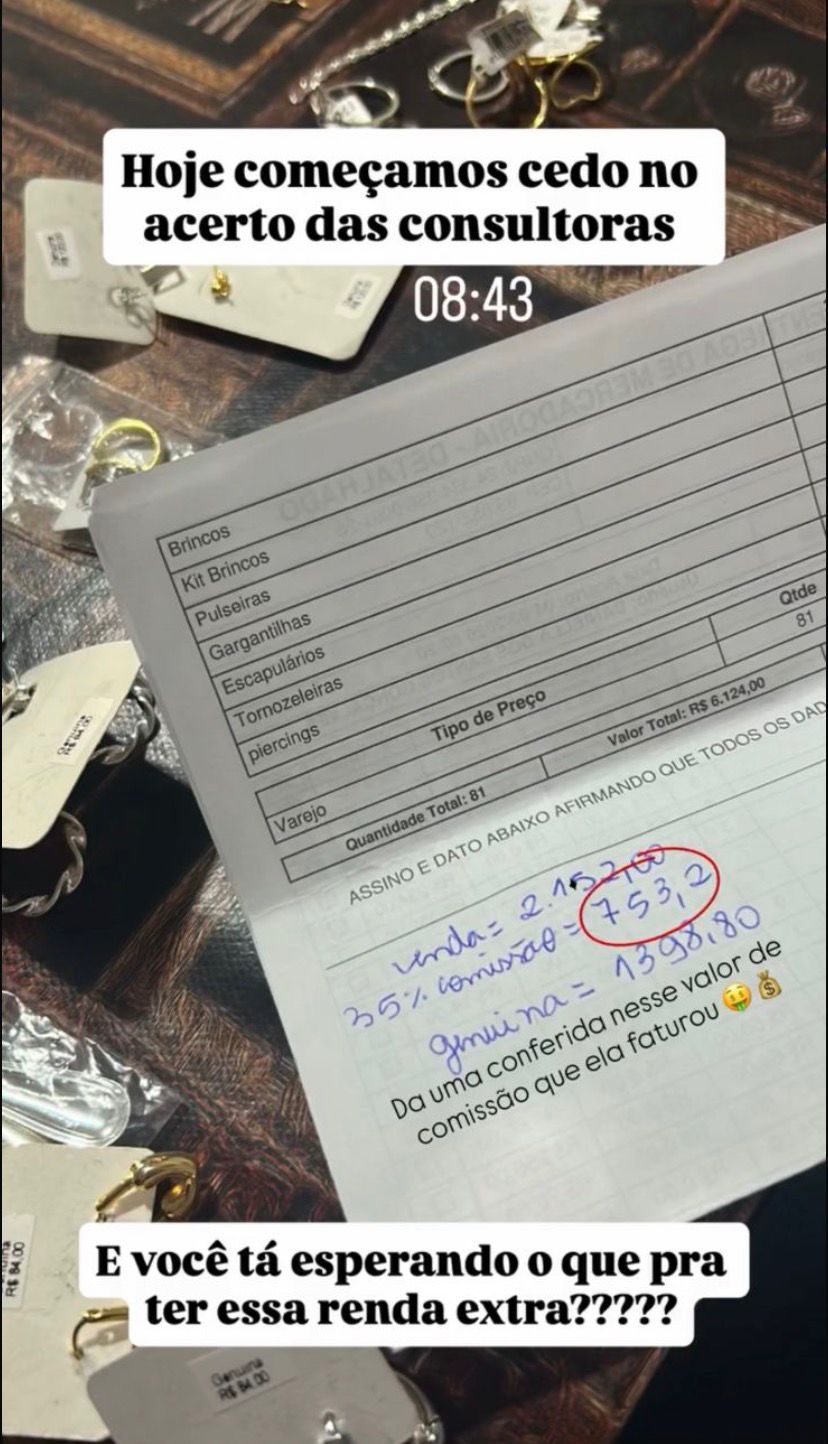 Hoje começamos cedo no
acerto das consultoras
08:43
Brincos
Kit Brincos
Pulseiras
Gargantilhas
Escapulários
Tornozeleiras
piercings
Tipo de Preço
Qtde
Varejo
81
Quantidade Total: 81
Valor Total: R$ 6.124,00
ASSINO E DATO ABAIXO AFIRMANDO QUE TODOS OS DAD
venda = 2.152,00
35% comissão = 753,2
genuina = 1398,80
Da uma conferida nesse valor de
comissão que ela faturou 🤑💰
E você tá esperando o que pra
ter essa renda extra?????
R$ 84,00
Genuina
R$ 84,00